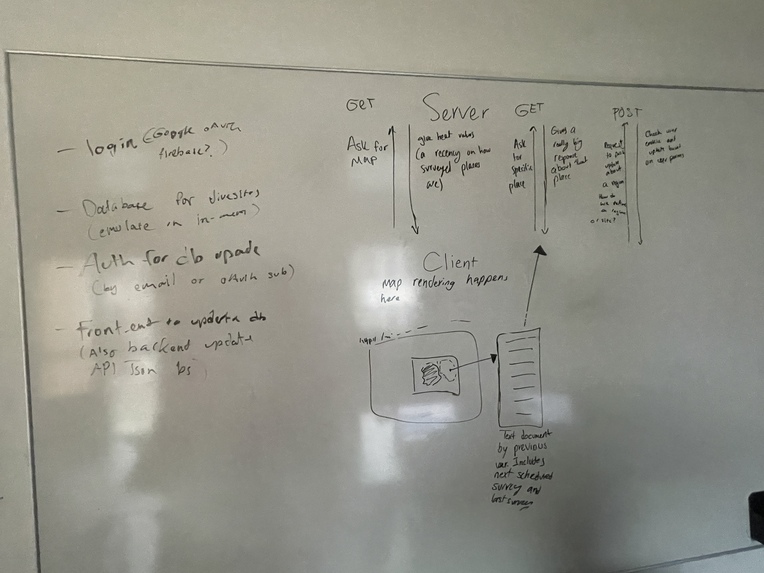 - login (Google oAuth
firebase?)
- Database for divesites
(emulate in in-mem)
- Auth for db
(by email or oAuth sub)
- Front-end to update db
(Also backend update
API Json
Server
GET
Ask for
Map
give heat
(a recency on how
surveyed places
are)
GET
Ask
for
specific
place
Gives a
really big
response
about that
place
POST
Request
update
about
a region
How do
we
region
or site?
Check user
cookie and
update based
on user
Client
Map rendering happens
here
Text document
by previous
user. Includes
next scheduled
survey and
last survey